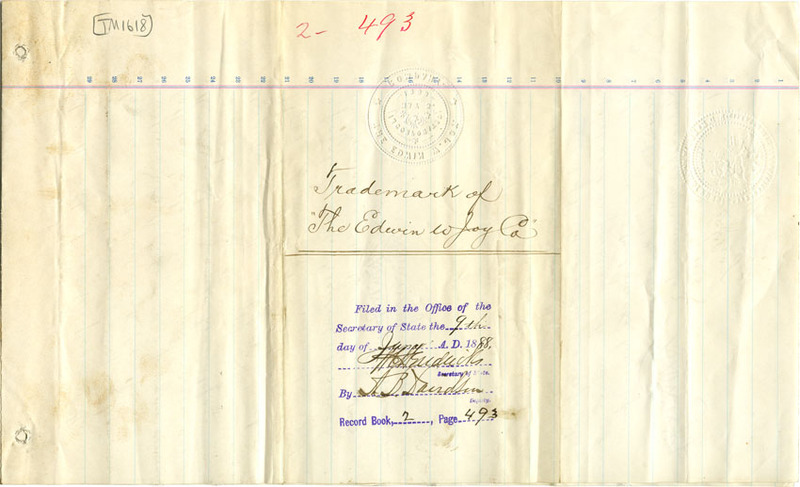 TM1618
2- 493
Trademark of
"The Edwin W Joy Co"
Filed in the Office of the
Secretary of State the 9th
day of A. D. 1888.
Secretary of State.
By
Deputy.
Record Book, 2, Page 493